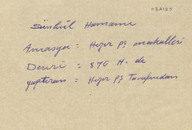 Sünbül Hamamı
Amasya : Hızır Pş mahallesi
Devri : 876 H. de
yaptıran : Hızır Pş Tarafından